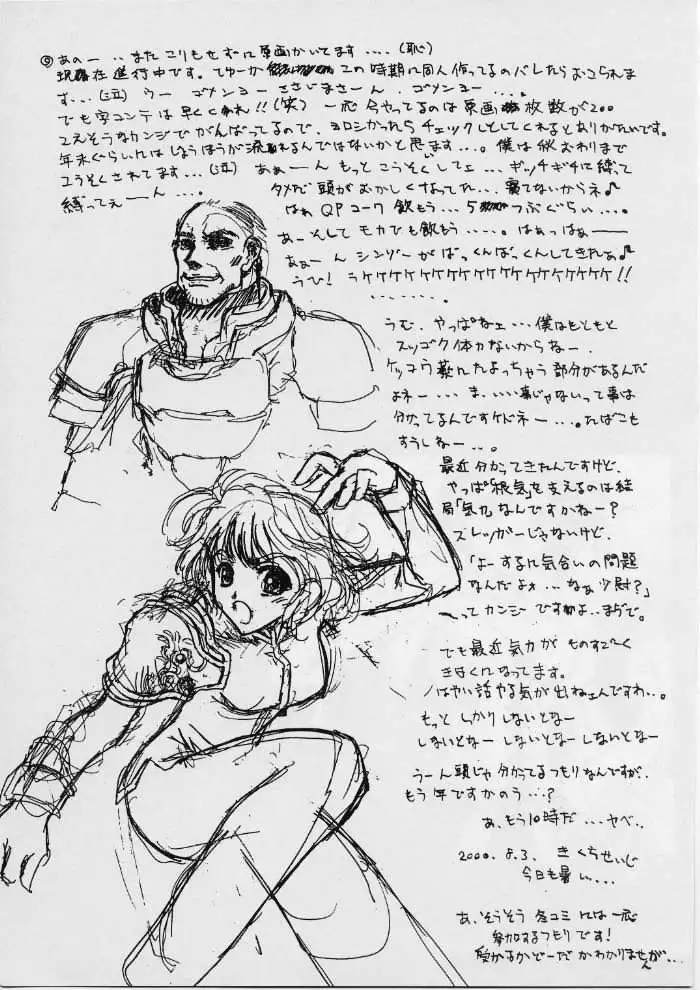 ◎ あのー‥またこりもせずに原画かいてます‥‥(恥)
現在進行中です。てゆーか この時期に同人作ってるのバレたらおこられま
す‥‥(泣) ウー ゴメンヨー ささじまさーん、ゴメンヨー‥‥。
でも字コンテは早くくれ!!(笑) 一応今やってるのは原画枚数が200
こえそうなカンジでがんばってるので、ヨロシかったらチェックしとしてくれるとありがたいです。
年末ぐらいにはじょうほうが流れるんではないかと思ます‥‥。僕は秋おわりまで
こうそくされてます‥‥(泣) あぁーん もっとこうそくしてェー ギッチギチに縛って
縛ってぇーん‥‥。
タメだ頭がおかしくなってた‥‥寝てないからネ♪
はぁ QPコーワ飲もう‥‥5つぶぐらい‥‥。
あーそしてモカでも飲もう‥‥‥。はぁっはぁーー
あぁーん シンゾーがばっくんばっくんしてきたぁ♪
うひ! ラケケケケケケケケケケケケケケケケケケ!!
‥‥‥‥。
うむ、やっぱねェ‥‥僕はもともと
スッゴク体力ないからねー、
ケッコウ薬にたよっちゃう部分があるんだ
よネー‥‥ま、いい事じゃないって事は
分かってるんですケドネー‥‥。たばこも
すうしねー‥‥。
最近分かってきたんですけど、
やっぱ「根気」を支えるのは結
局「気力」なんですかねー?
スレッガーじゃないけど、
「よーするに気合いの問題
なんだよォ‥‥なぁ少尉?」
〜ってカンジーですわよ‥まぢで。
でも最近気力がものすご〜く
きはくになってます。
はやい話やる気が出ねェんですわ‥。
もっとしっかりしないとなー
しないとなー しないとなー しないとなー
うーん頭じゃ分かってるつもりなんですが、
もう年ですかのう‥‥?
あ、もう10時だ‥‥ヤベ‥
2000.8.3. きくちせいじ
今日も暑い‥‥
あ、そうそう冬コミには一応
参加するつもりです!
受かるかどーだかわかりませんが‥‥